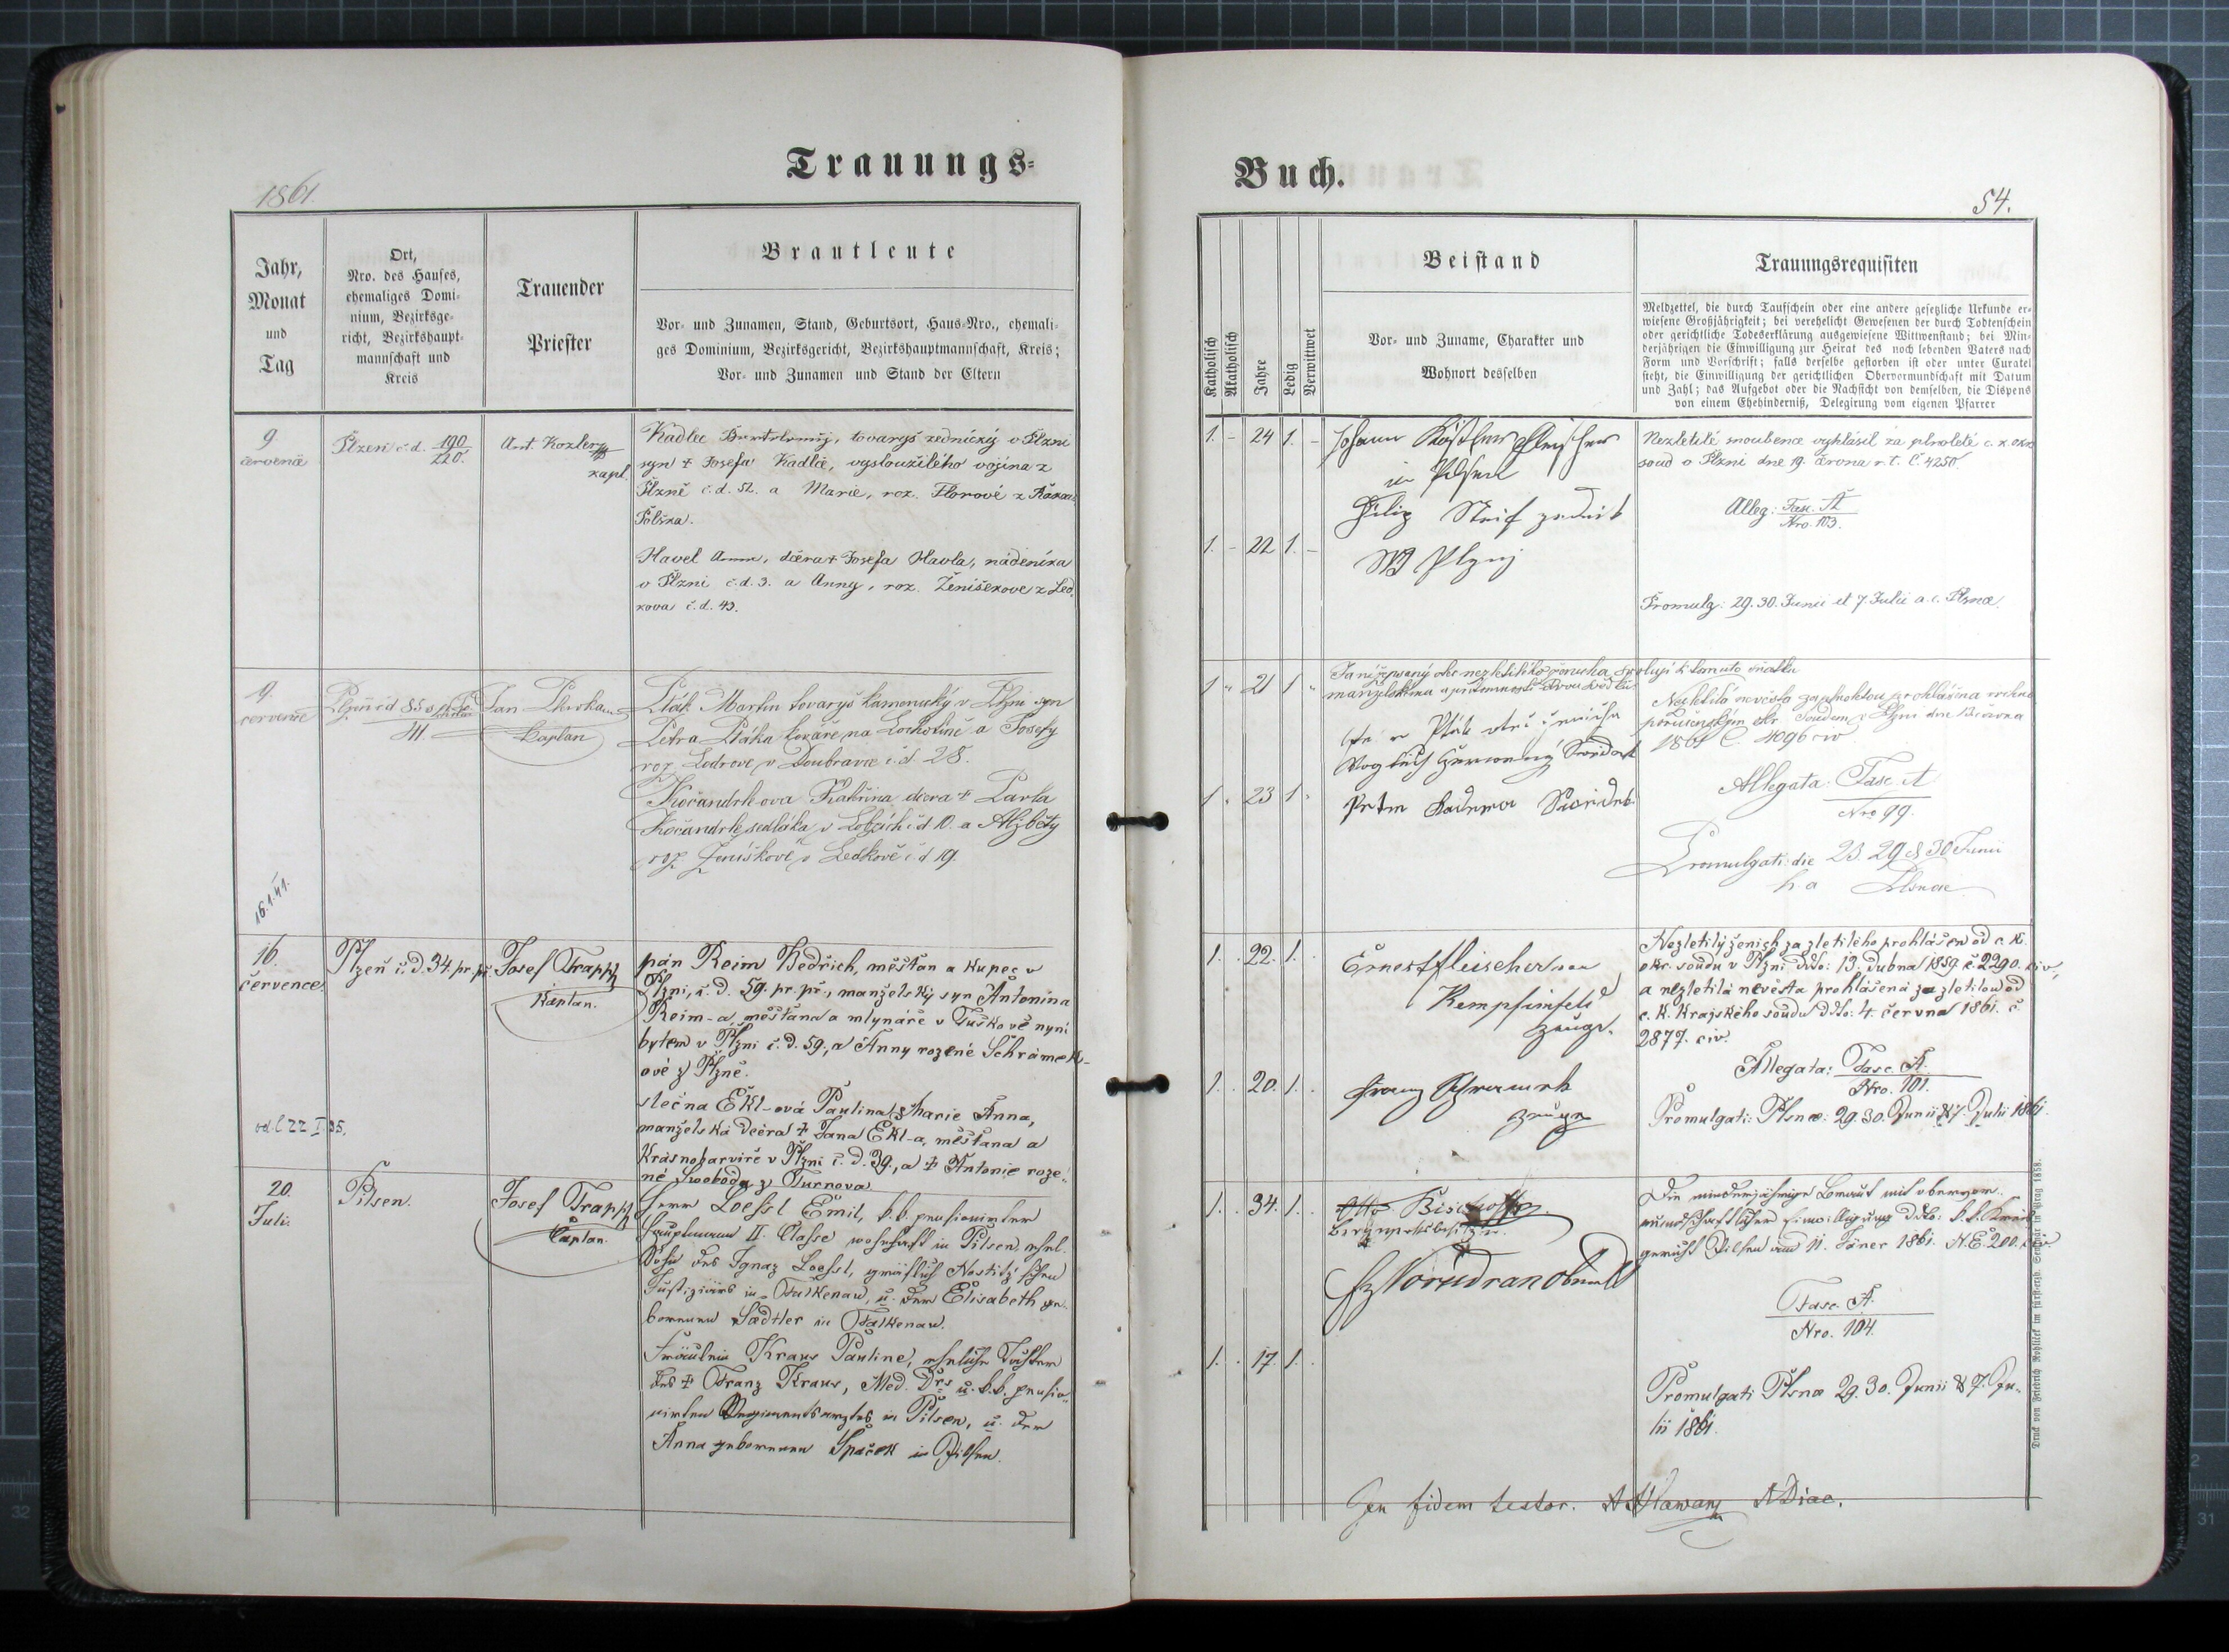 Trauungs=
1861.
Jahr,
Monat
und
Tag
Ort,
Nro. des Hauses,
ehemaliges Domi-
nium, Bezirksge-
richt, Bezirkshaupt-
mannschaft und
Kreis
Trauender
Priester
Brautleute
Vor- und Zunamen, Stand, Geburtsort, Haus-Nro., ehemali-
ges Dominium, Bezirksgericht, Bezirkshauptmannschaft, Kreis;
Vor- und Zunamen und Stand der Eltern
9
července
Plzeň č. d. 190/220.
Ant. Kozler
kapl.
Kadlec Bartoloměj, tovaryš zednický v Plzni
syn † Josefa Kadlce, vysloužilého vojína z
Plzně č. d. 52. a Marie, roz. Florové z
Polska.
Havel Anna, dcera † Josefa Havla, nádeníka
v Plzni č. d. 3. a Anny, roz. Ženíškove z Led-
kova č. d. 43.
9.
července
Plzni č d 85
41.
Jan
Caplan
Pták Martin tovaryš kamenický v Plzni syn
Petra Ptáka kováře na Lochotíně a Josefy
roz. v Doubravce č. d. 28.
Kočandrlova Kateřina dcera † Karla
Kočandrle sedláka v č d 10. a Alžběty
roz. Ženíškové v Ledkově č. d 19.
16.1.41.
16.
července
Plzeň č. d. 34. pr. př.
Josef Trapp
Kaplan.
pán Reim Bedřich, měšťan a kupec v
Plzni, č. d. 59. pr. př., manželský syn Antonína
Reim-a, měšťana a mlynáře v Tuškově nyní
bytem v Plzni č. d. 59., a Anny rozené Schrámek-
ové z Plzně.
slečna Ekl-ová Paulina, Marie Anna,
manželská dcera † Jana Ekl-a, měšťana a
krásnobarvíře v Plzni č. d. 39., a † Antonie roze-
né Swoboda z Turnova.
od. l 22 I 35.
20.
Juli.
Pilsen.
Josef Trapp
Caplan.
Herr Loessl Emil, k.k. pensionirter
Hauptmann II. Classe wohnhaft in Pilsen, ehel.
Sohn des Ignaz Loessl, gräflich Nostitz'schen
Justiziärs in Falkenau, u. der Elisabeth ge-
borenen Saedtler in Falkenau.
Fräulein Kraus Pauline, eheliche Tochter
des † Franz Kraus, Med. Drs u. k.k. pensio-
nirten Regimentsarztes in Pilsen, u. der
Anna geborenen Spaček in Pilsen.
Buch.
54.
Katholisch
Akatholisch
Jahre
Ledig
Verwittwet
Beistand
Vor- und Zuname, Charakter und
Wohnort desselben
Trauungsrequisiten
Meldzettel, die durch Taufschein oder eine andere gesetzliche Urkunde er-
wiesene Großjährigkeit; bei verehelicht Gewesenen der durch Todtenschein
oder gerichtliche Todeserklärung ausgewiesene Wittwenstand; bei Min-
derjährigen die Einwilligung zur Heirat des noch lebenden Vaters nach
Form und Vorschrift; falls derselbe gestorben ist oder unter Curatel
steht, die Einwilligung der gerichtlichen Obervormundschaft mit Datum
und Zahl; das Aufgebot oder die Nachsicht von demselben, die Dispens
von einem Ehehinderniß, Delegirung vom eigenen Pfarrer
1. - 24 1. -
Johann Köstler Fleischer
in Pilsen
Nezletilé snoubence vyhlásil za plnoleté c. k. okr.
soud v Plzni dne 19. června r. t. č. 4250.
Alleg: Fasc. A
Nro. 103.
1. - 22 1. -
Filip Steif zedník
Promulg: 29. 30. Junii et 7. Julii a. c. Plsnæ.
1 " 21 1 "
Já nížepsaný otec nezletilého ženicha svoluji k tomuto sňatku
manželskému u přítomnosti dvou svědků.
Pták otec ženicha
Nezletilá nevěsta za plnoletou prohlášena vrchno
poručenským okr. Soudem v Plzni dne června
1861 Č. 4096 civ
Allegata: Fasc A
Nro 99.
1 " 23 1 "
Promulgati: die 23. 29 & 30 Junii
h. a Plsnae
1. . 22. 1. .
Ernest Fleischer von
Kempfimfeld
Zeuge.
Nezletilý ženich za zletilého prohlášen od c. k.
okr. soudu v Plzni ddo: 13. dubna 1859. č. 2290. civ,
a nezletilá nevěsta prohlášená za zletilou od
c. k. Krajského soudu ddo: 4. června 1861. č.
2877. civ.
Allegata: Fasc. A.
Nro. 101.
1. . 20. 1. .
Franz Schramek
Zeuge
Promulgati: Plsnæ: 29. 30. Junii & 7. Julii 1861.
1. . 34. 1. .
Otto Bischoff
Bergwerksbesitzer.
Die minderjährige Braut mit obervor-
mundschaftlicher Einwilligung ddo: k.k. Kreis-
gericht Pilsen vom 11. Jäner 1861. N.E. 200. civ.
Fasc. A.
Nro. 104.
1. . 17. 1. .
Promulgati Plsnæ 29. 30. Junii & 7. Ju-
lii 1861.
fidem testor. A Hlawan ADiac.
Druck von Friedrich Rohliček im fürst-erzb. Seminär in Prag 1858.